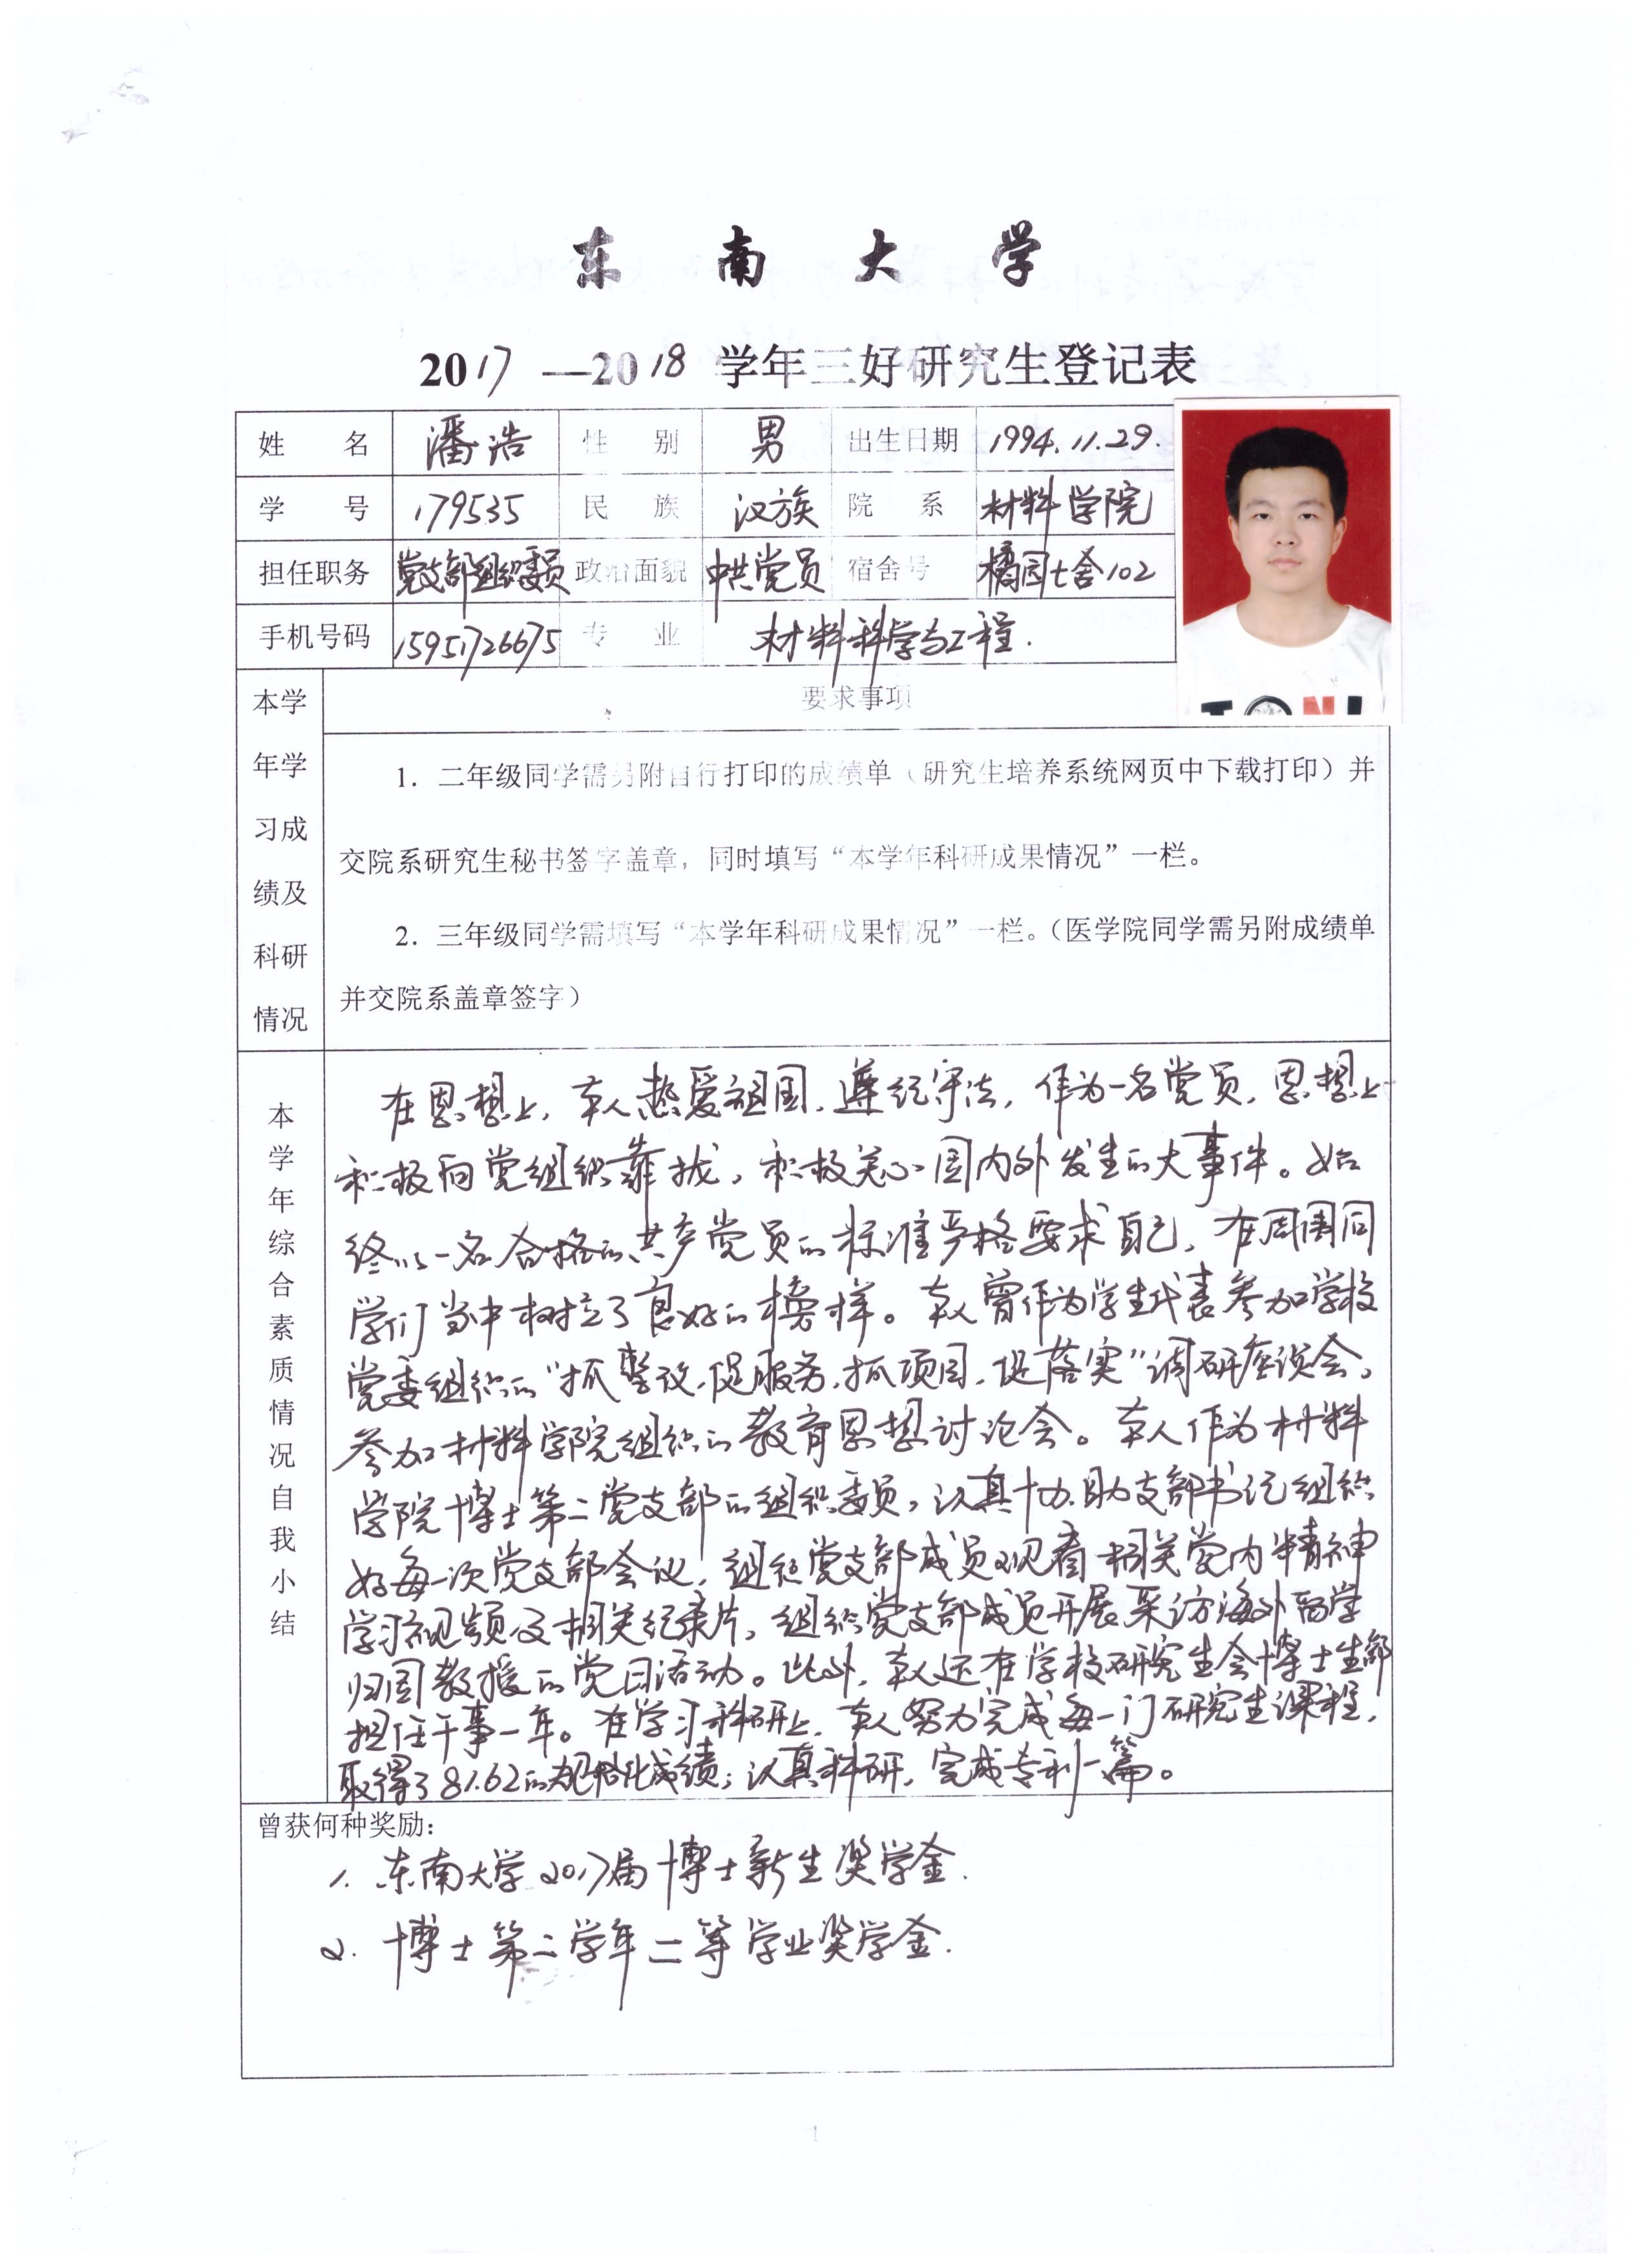 东南大学
2017—2018 学年三好研究生登记表
姓 名 潘浩 性 别 男 出生日期 1994.11.29.
学 号 179535 民 族 汉族 院 系 材料学院
担任职务 党支部组织委员 政治面貌 中共党员 宿舍号 橘园七舍102
手机号码 15951726675 专 业 材料科学与工程.
本学年学习成绩及科研情况
要求事项
1. 二年级同学需另附自行打印的成绩单（研究生培养系统网页中下载打印）并
交院系研究生秘书签字盖章，同时填写“本学年科研成果情况”一栏。
2. 三年级同学需填写“本学年科研成果情况”一栏。（医学院同学需另附成绩单
并交院系盖章签字）
本学年综合素质情况自我小结
在思想上，本人热爱祖国，遵纪守法，作为一名党员，思想上
积极向党组织靠拢，积极关心国内外发生的大事件。始
终以一名合格的共产党员的标准严格要求自己，在周围同
学们当中树立了良好的榜样。本人曾作为学生代表参加学校
党委组织的“抓整改，促服务，抓项目，促落实”调研座谈会。
参加材料学院组织的教育思想讨论会。本人作为材料
学院博士第二党支部的组织委员，认真协助支部书记组织
好每一次党支部会议，组织党支部成员观看相关党内精神
学习视频及相关纪录片，组织党支部成员开展采访海外留学
归国教授的党日活动。此外，本人还在学校研究生会博士生部
担任干事一年。在学习科研上，本人努力完成每一门研究生课程，
取得了81.62的规格化成绩；认真科研，完成专利一篇。
曾获何种奖励：
1. 东南大学2017届博士新生奖学金.
2. 博士第二学年二等学业奖学金.